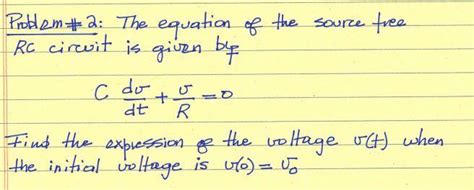 Problem # 2: The equation of the source free
RC circuit is given by
C dv/dt + v/R = 0
Find the expression of the voltage v(t) when
the initial voltage is v(0) = V₀